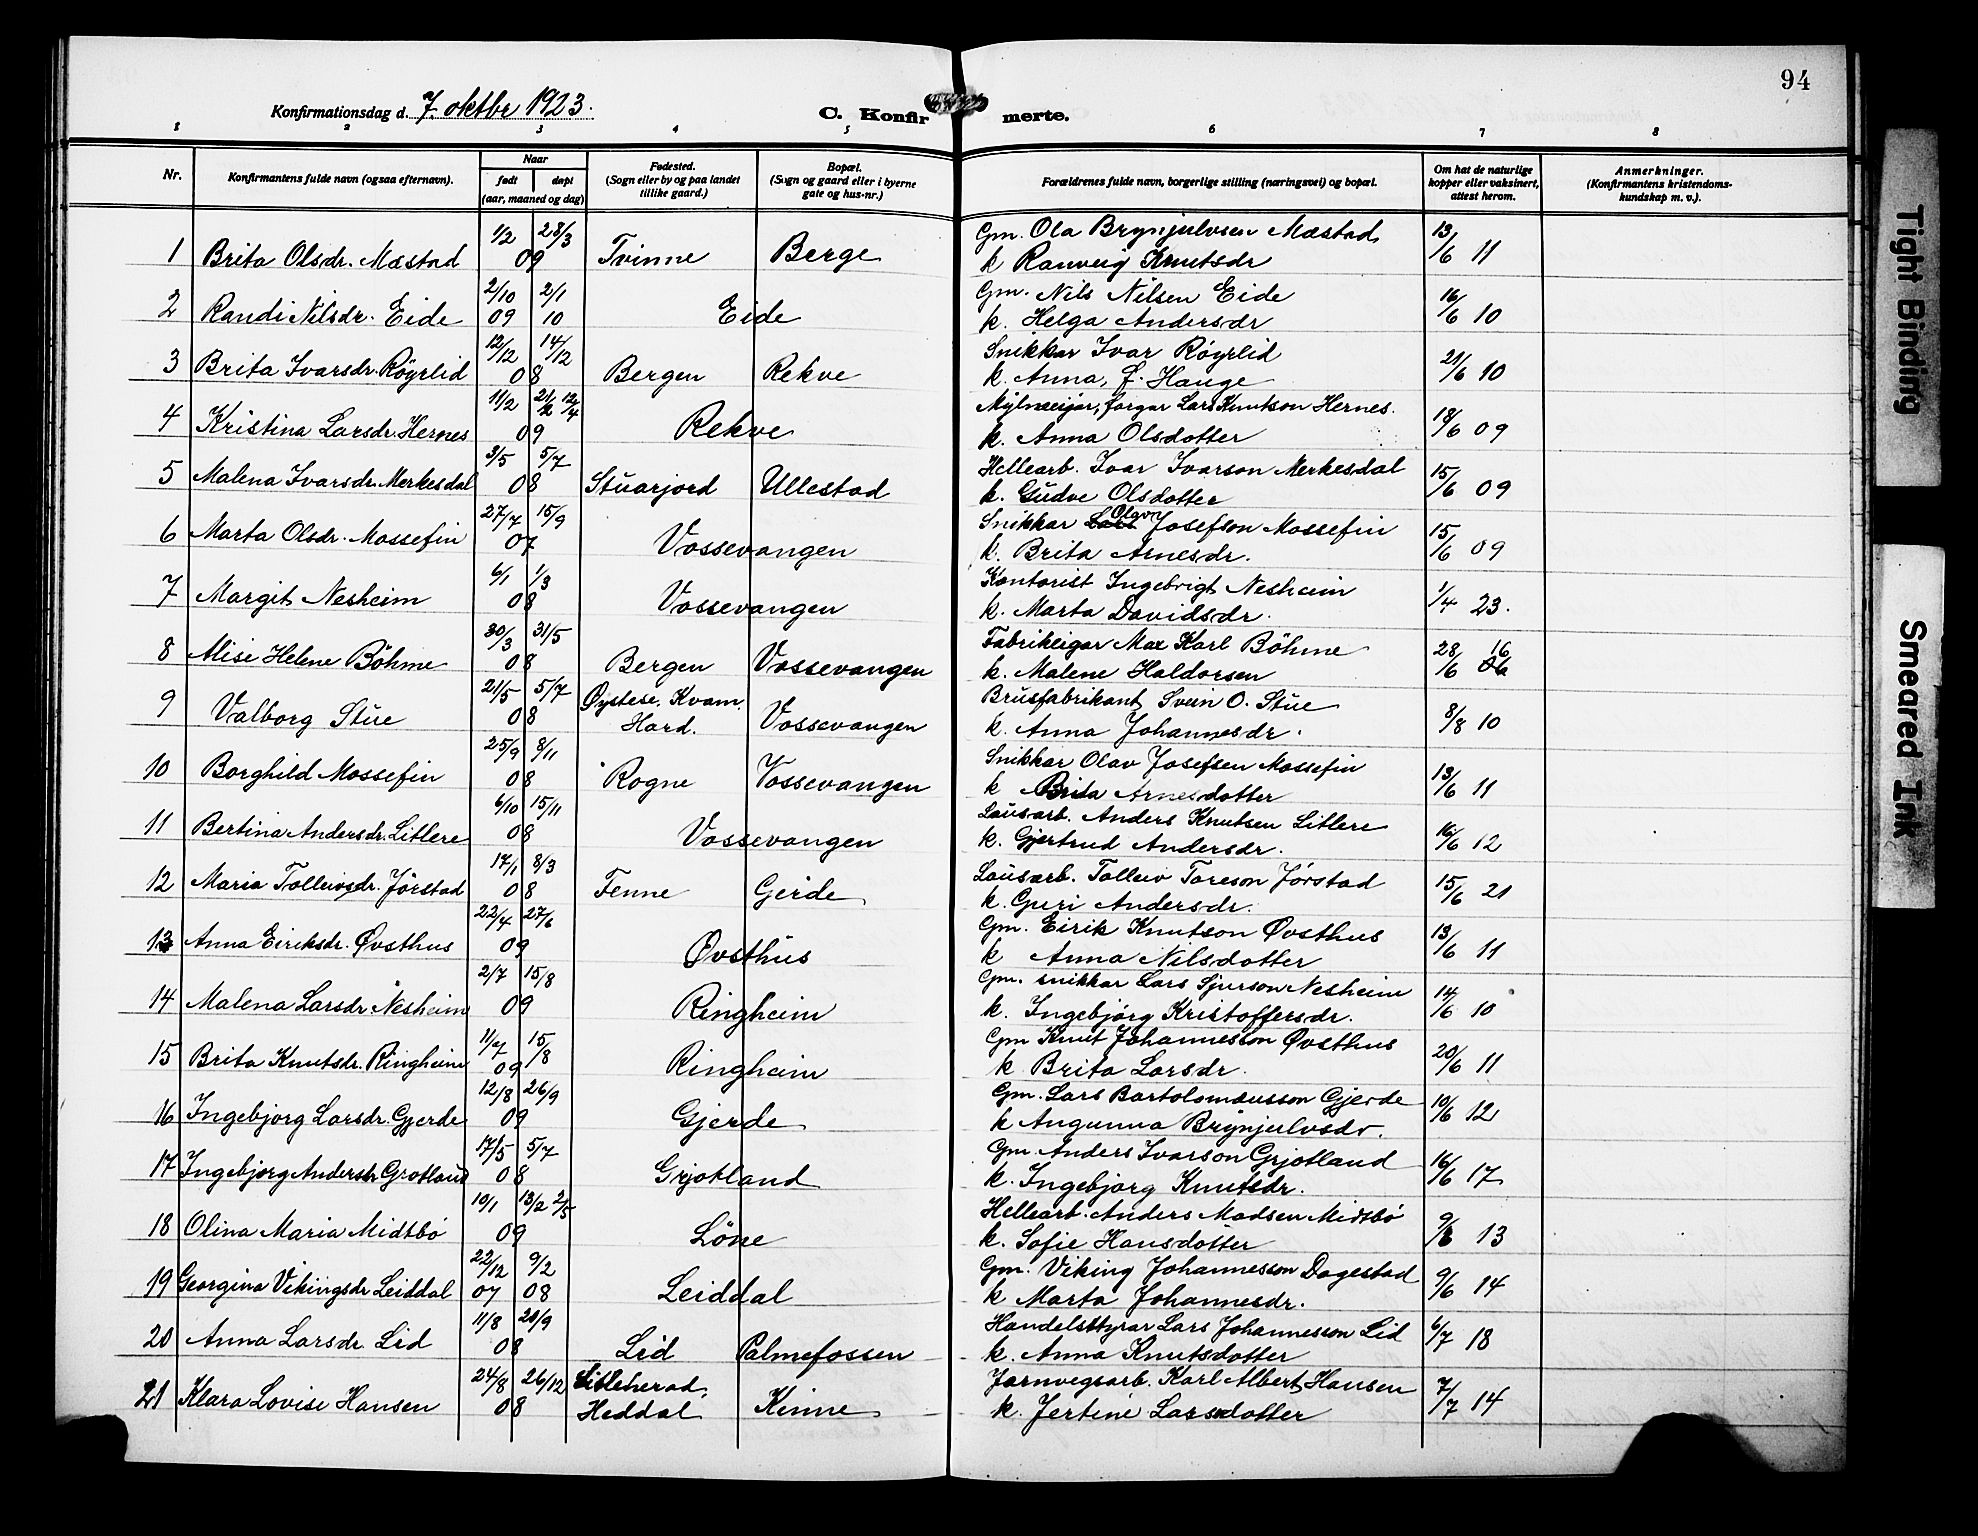 94
Konfirmationsdag d. 7. oktbr 1923.
C. Konfirmerte.
1 2 3 4 5 6 7 8
Nr. Konfirmantens fulde navn (ogsaa efternavn). Naar født døpt (aar, maaned og dag) Fødested. (Sogn eller by og paa landet tillike gaard.) Bopæl. (Sogn og gaard eller i byerne gate og hus-nr.) Forældrenes fulde navn, borgerlige stilling (næringsvei) og bopæl. Om hat de naturlige kopper eller vaksinert, attest herom. Anmerkninger. (Konfirmantens kristendoms-kundskap m. v.).
1 Brita Olsdr. Mæstad 1/2 28/3 09 Tvinne Berge Gm. Ola Brynjulvsen Mæstad k Ranveig Knutsdr 13/6 11
2 Randi Nilsdr. Eide 2/10 09 2/1 10 Eide Gm. Nils Nilsen Eide k. Helga Andersdr 16/6 10
3 Brita Ivarsdr. Röyrlid 12/12 14/12 08 Bergen Rekve Snikkar Ivar Röyrlid k. Anna, f. Hauge 21/6 10
4 Kristina Larsdr. Hernes 11/2 21/2 12/4 09 Rekve Mylnæeigar, fargar Lars Knutson Hernes. k. Anna Olsdotter 18/6 09
5 Malena Ivarsdr. Merkesdal 3/5 5/7 08 Stuarjord Ullestad Hellearb. Ivar Ivarson Merkesdal k. Gudve Olsdotter 15/6 09
6 Marta Olsdr. Mossefin 27/7 15/9 07 Vossevangen Snikkar Lars Olav Josefson Mossefin k. Brita Arnesdr. 15/6 09
7 Margit Nesheim 6/1 1/3 08 Vossevangen Kontorist Ingebrigt Nesheim k. Marta Davidsdr. 1/4 23.
8 Alise Helene Böhme 30/3 31/5 08 Bergen Vossevangen Fabrikeigar Max Karl Böhme k. Malene Haldorsen 28/6 16
9 Valborg Stue 21/5 5/7 08 Øystese, Kvam, Hard. Vossevangen Brusfabrikant Svein O. Stue k. Anna Johannesdr. 8/8 10
10 Borghild Mossefin 25/9 8/11 08 Rogne Vossevangen Snikkar Olav Josefsen Mossefin k Brita Arnesdotter 13/6 11
11 Bertina Andersdr. Litlere 6/10 15/11 08 Vossevangen Lausarb. Anders Knutsen Litlere k. Gjertrud Andersdr. 16/6 12
12 Maria Tolleivsdr. Jörstad 17/1 8/3 08 Fenne Gjerde Lausarb. Tolleiv Toreson Jörstad k. Guri Andersdr. 15/6 21
13 Anna Eiriksdr. Øvsthus 22/4 27/6 09 Øvsthus Gm. Eirik Knutson Øvsthus k Anna Nilsdotter 13/6 11
14 Malena Larsdr. Nesheim 2/7 15/8 09 Ringheim Gm. snikkar Lars Sjurson Nesheim k. Ingebjörg Kristoffersdr. 14/6 10
15 Brita Knutsdr. Ringheim 11/7 15/8 09 Ringheim Gm Knut Johannesson Øvsthus k Brita Larsdr. 20/6 11
16 Ingebjorg Larsdr. Gjerde 12/8 26/9 09 Gjerde Gm. Lars Bartolomæusson Gjerde k Angunna Brynjulvsdr. 10/6 12
17 Ingebjorg Andersdr. Grotland 17/5 5/7 08 Grjotland Gm. Anders Ivarson Grjotland k. Ingebjorg Knutsdr. 16/6 17
18 Olina Maria Midtbö 10/1 13/2 2/5 09 Löne Hellearb. Anders Madsen Midtbö k. Sofie Hansdotter 9/6 13
19 Georgina Vikingsdr Leiddal 22/12 07 9/2 08 Leiddal Gm. Viking Johannesson Dagestad k Marta Johannesdr. 9/6 14
20 Anna Larsdr. Lid 11/8 20/9 08 Lid Palmefossen Handelstyrar Lars Johannesson Lid k. Anna Knutsdotter 6/7 18
21 Klara Lovise Hansen 24/8 26/12 08 Litleherad, Heddal Kinne Jarnvegsarb. Karl Albert Hansen k. Jertine Larsdotter 7/7 14
Tight Binding
Smeared Ink